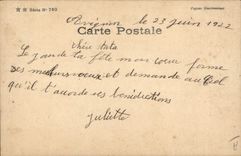 Avignon le 23 juin 1922
Série N° 760
Carte Postale
Chère
Le jour de ta fête mon cœur forme
des meilleurs vœux et demande au Ciel
qu'il t'accorde ses bénédictions
Juliette